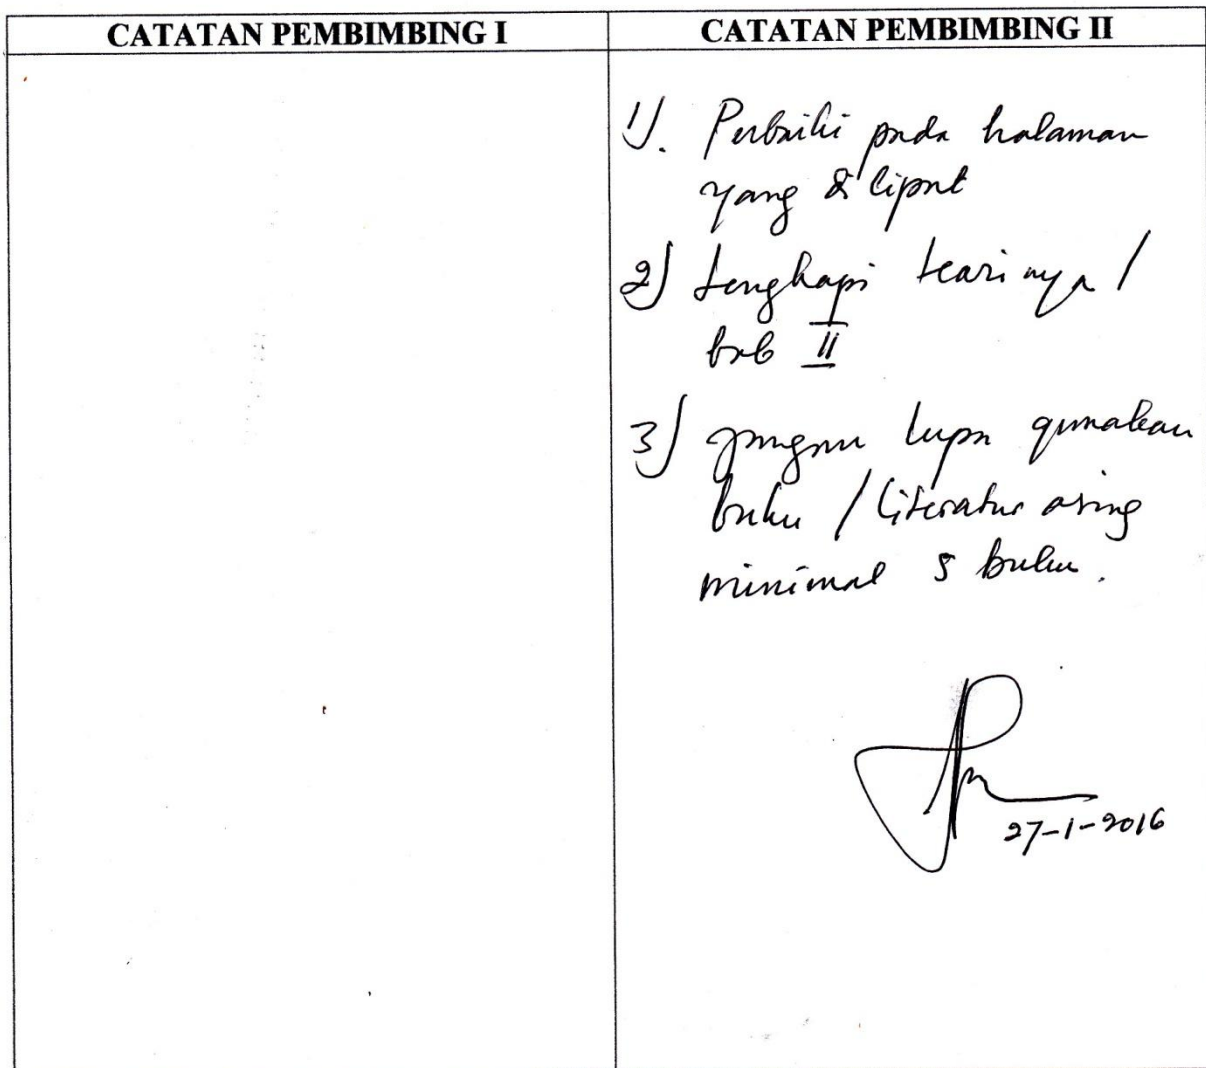 CATATAN PEMBIMBING I
CATATAN PEMBIMBING II
1). Perbaiki pada halaman
yang di lipat
2) Lengkapi teorinya /
bab II
3) jangan lupa gunakan
buku / literatur asing
minimal 5 buku.
27-1-2016